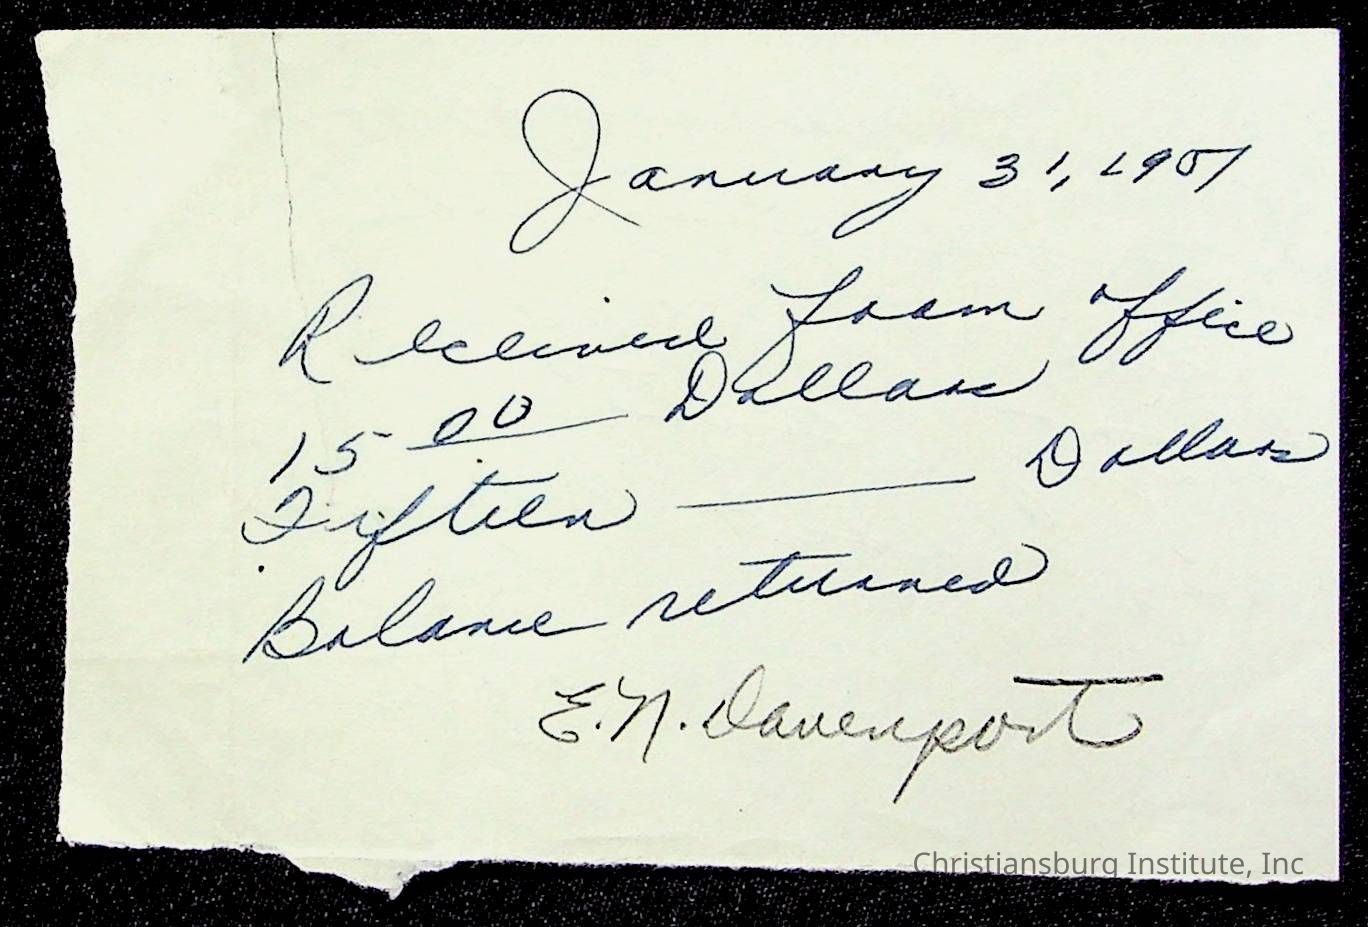 January 31, 1951
Received from office
15 00 Dollars
Fifteen — Dollars
Balance returned
E. N. Davenport
Christiansburg Institute, Inc